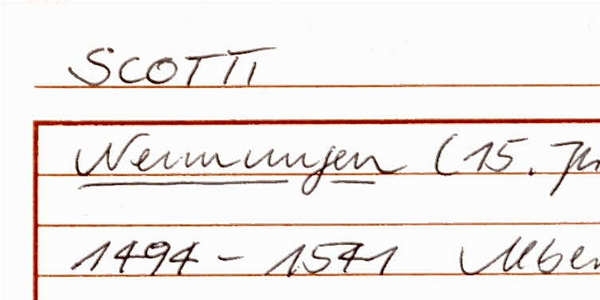 SCOTTI
Nennungen (15. Jh
1494 - 1541 Alber